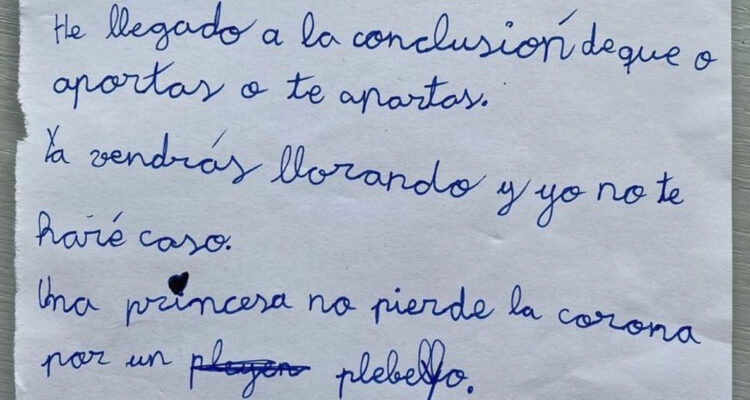 He llegado a la conclusión de que o
aportas o te apartas.
Ya vendrás llorando y yo no te
haré caso.
Una princesa no pierde la corona
por un plebello.